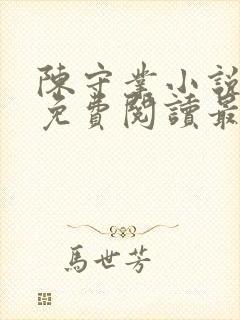 陳守業小說
免費閱讀最
馬世芳